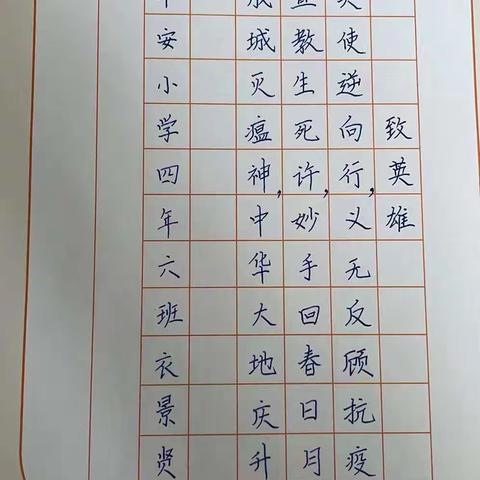 致英雄
使逆向行,义无反顾抗疫
教生死许,妙手回春日月
城灭瘟神,中华大地庆升
安小学四年六班衣景贤